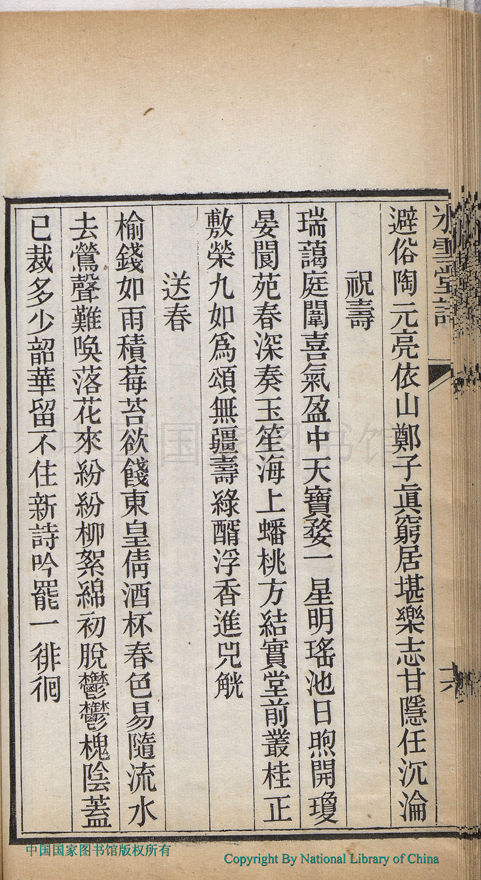 冰雪堂詩
避俗陶元亮依山鄭子眞窮居堪樂志甘隱任沉淪
祝壽
瑞藹庭闈喜氣盈中天寶婺一星明瑤池日煦開瓊
晏閬苑春深奏玉笙海上蟠桃方結實堂前叢桂正
敷榮九如爲頌無疆壽綠醑浮香進兕觥
送春
榆錢如雨積莓苔欲餞東皇倩酒杯春色易隨流水
去鶯聲難喚落花來紛紛柳絮綿初脫鬱鬱槐陰蓋
已裁多少韶華留不住新詩吟罷一徘徊
中国国家图书馆
中国国家图书馆版权所有
Copyright By National Library of China